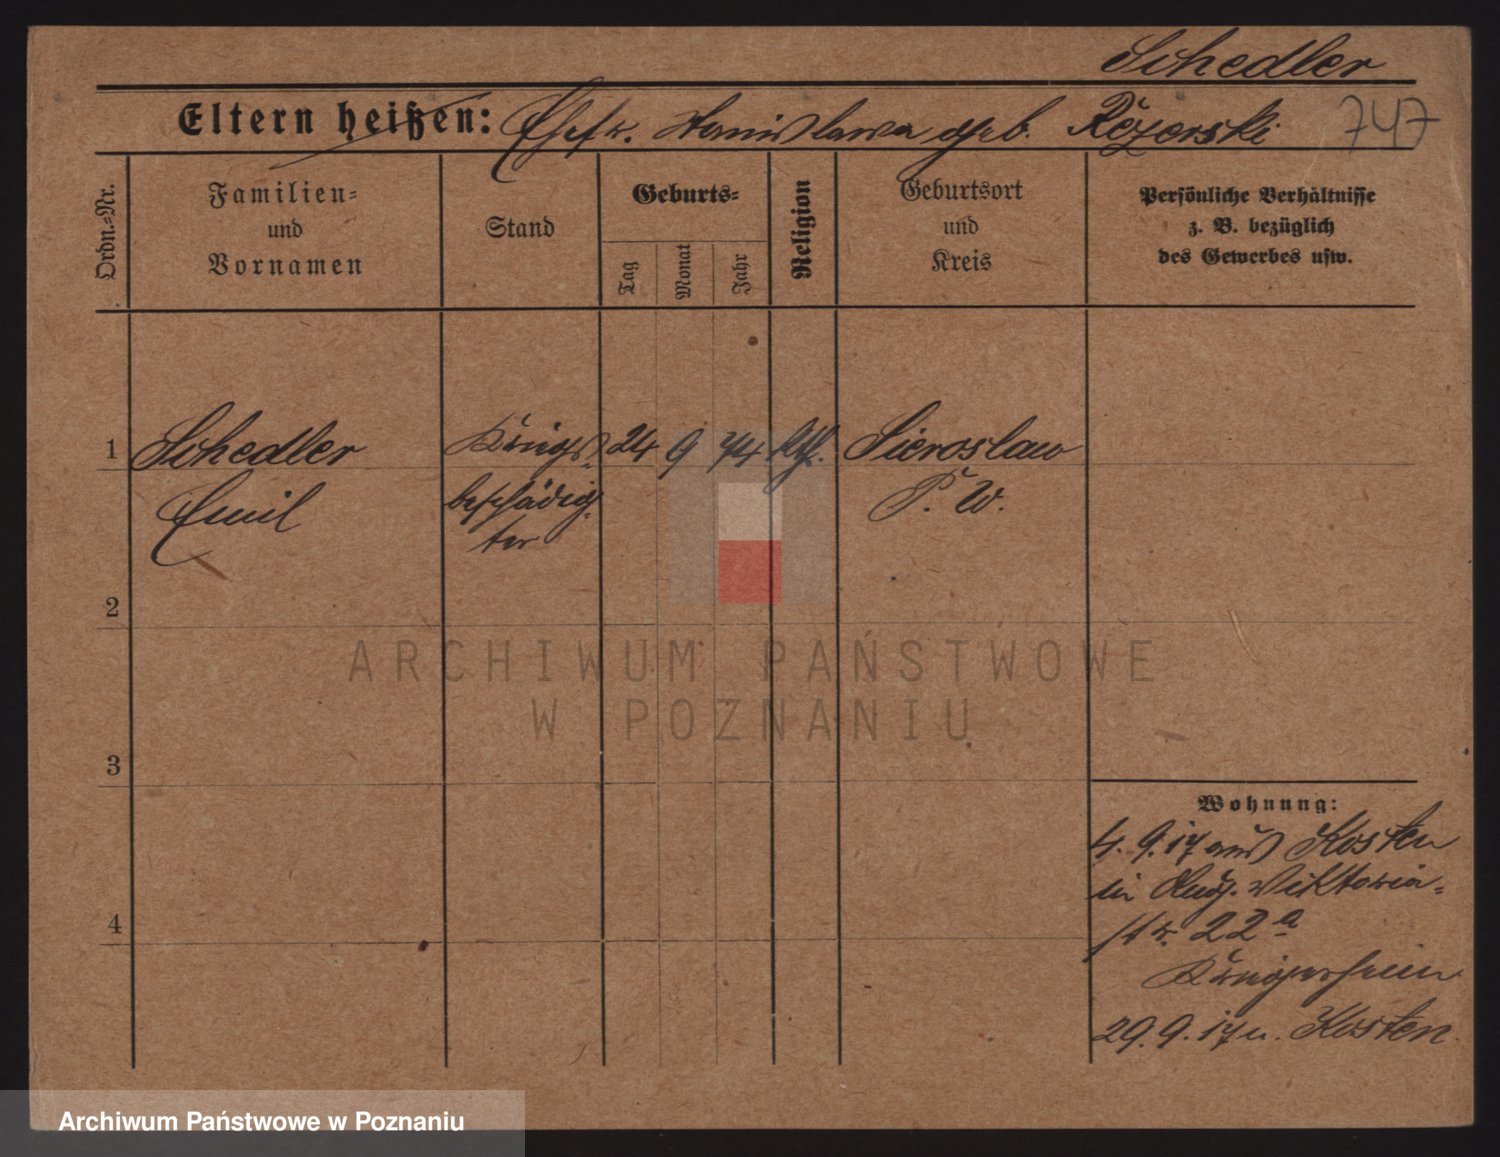 Schedler
Eltern heißen: Ehefr. Stanislawa geb. Rózorski 747
Ordn.-Nr.
Familien-
und
Vornamen
Stand
Geburts-
Tag
Monat
Jahr
Religion
Geburtsort
und
Kreis
Persönliche Verhältnisse
z. B. bezüglich
des Gewerbes usw.
1 Schedler Kriegs- 24 9 74 kth. Sieroslaw
Emil beschädig- P. W.
ter
2
3
4
Wohnung:
4. 9. 17 aus Kosten
in Viktoria-
str. 22a
Kriegerheim
29. 9. 17 n. Kosten
ARCHIWUM PAŃSTWOWE
W POZNANIU
Archiwum Państwowe w Poznaniu